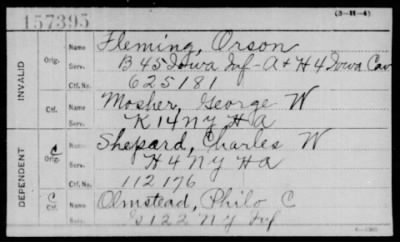 157395
(3-H-4)
INVALID
Orig. Name Fleming, Orson
Serv. B 45 Iowa Inf - A & H 4 Iowa Cav
Ctf. No. 625181
Ctf. Name Mosher, George W
Serv. K 14 NY HA
DEPENDENT
C Orig. Name Shepard, Charles W
Serv. H 4 NY HA
Ctf. No. 112176
C Ctf. Name Olmstead, Philo C
Serv. 122 NY Inf